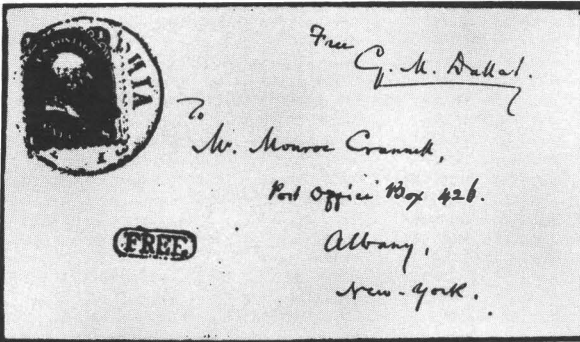 Free
G. M. Dallas.
To
Mr. Monroe Crannell,
Post Office Box 426.
Albany,
New-York.
FREE